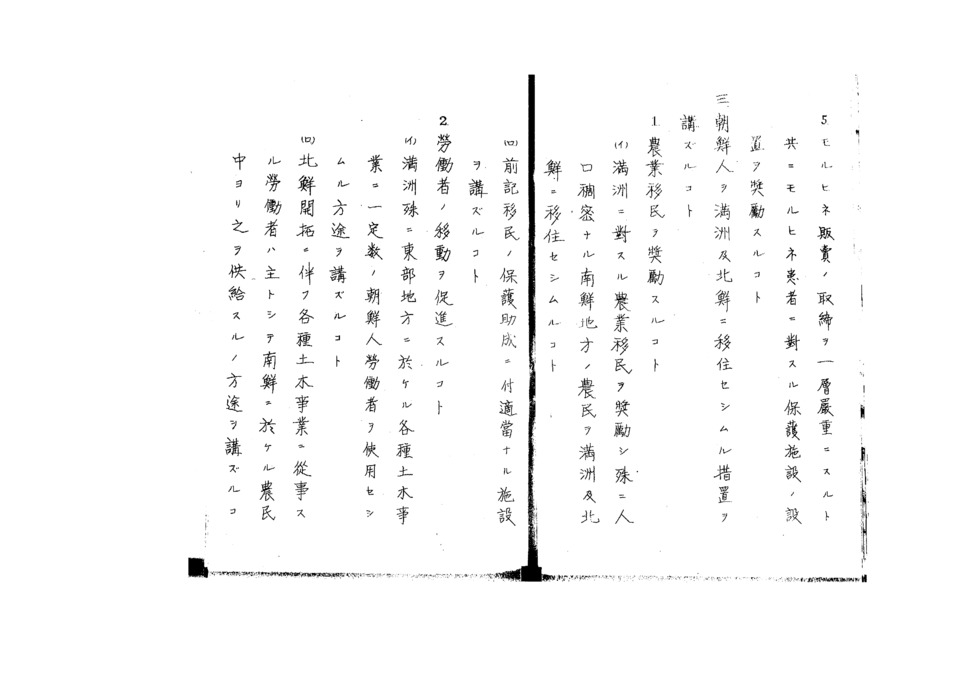 5モルヒネ販賣ノ取締ヲ一層嚴重ニスルト
共ニモルヒネ患者ニ對スル保護施設ノ設
置ヲ奬勵スルコト
三、朝鮮人ヲ滿洲及北鮮ニ移住セシムル措置ヲ
講ズルコト
1農業移民ヲ奬勵スルコト
(イ)滿洲ニ對スル農業移民ヲ奬勵シ殊ニ人
口稠密ナル南鮮地方ノ農民ヲ滿洲及北
鮮ニ移住セシムルコト
(ロ)前記移民ノ保護助成ニ付適當ナル施設
ヲ講ズルコト
2勞働者ノ移動ヲ促進スルコト
(イ)滿洲殊ニ東部地方ニ於ケル各種土木事
業ニ一定數ノ朝鮮人勞働者ヲ使用セシ
ムル方途ヲ講ズルコト
(ロ)北鮮開拓ニ伴フ各種土木事業ニ從事ス
ル勞働者ハ主トシテ南鮮ニ於ケル農民
中ヨリ之ヲ供給スルノ方途ヲ講ズルコ